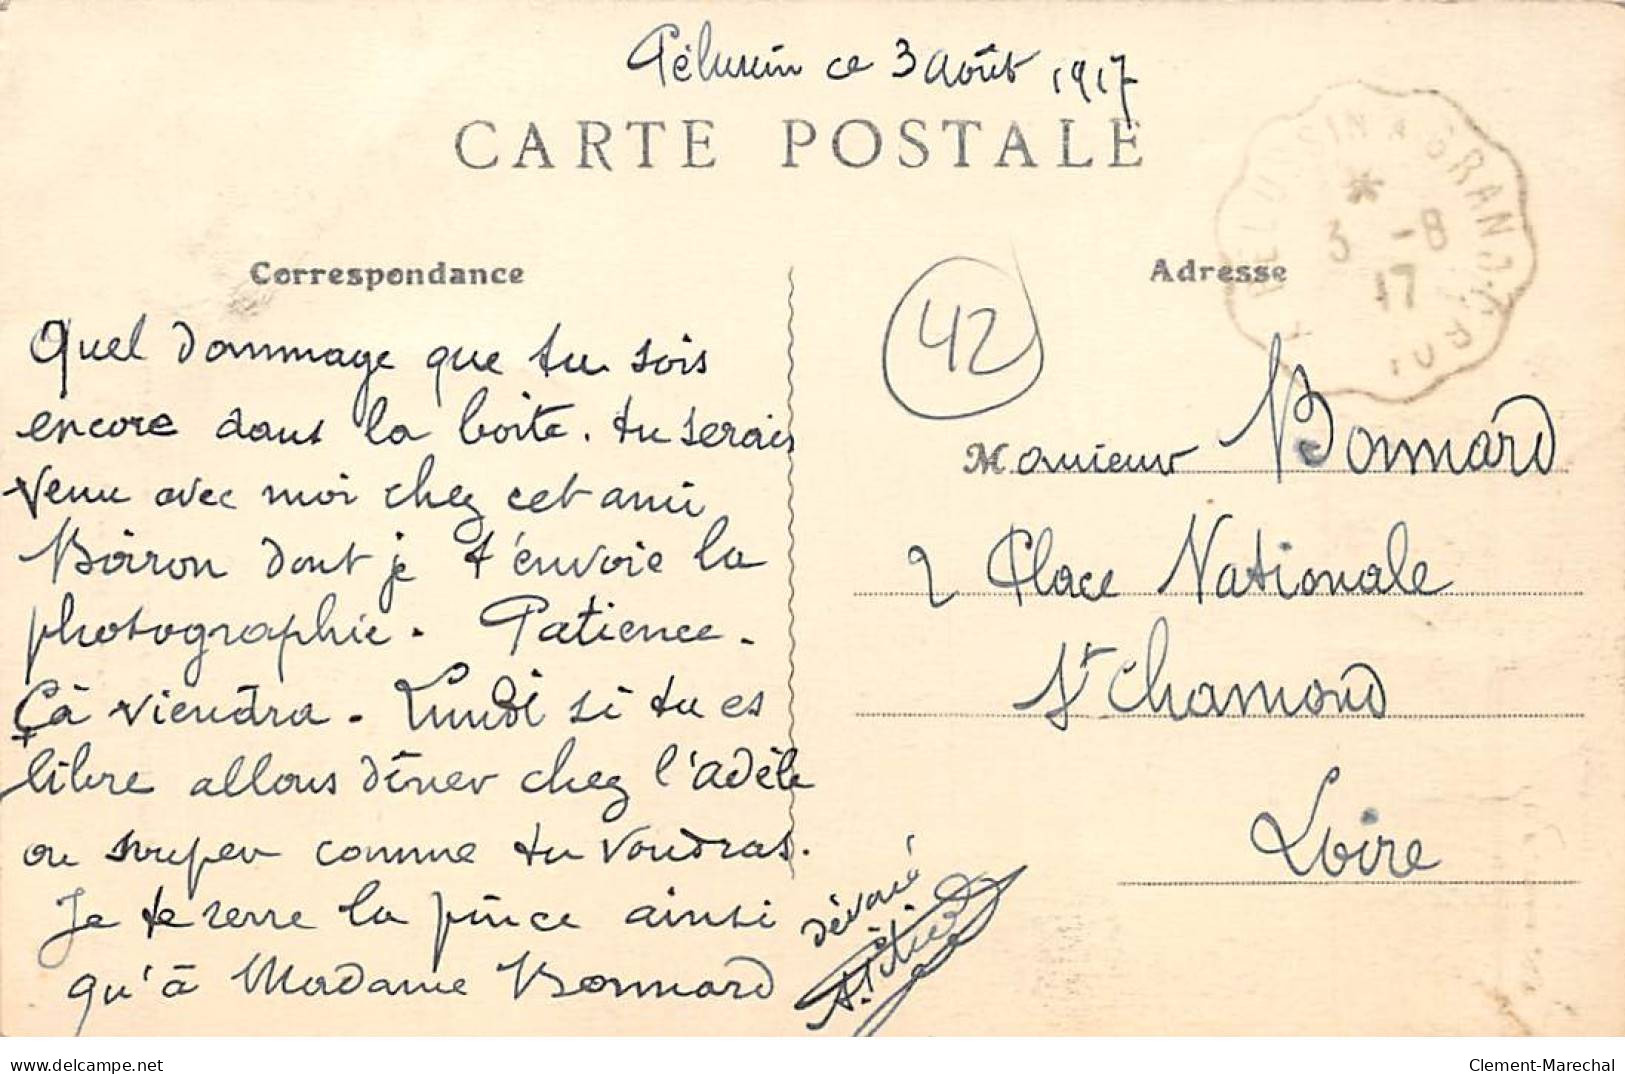 Pélussin ce 3 Août 1917
CARTE POSTALE
PELUSSIN A GRAND
3 -8
17
Correspondance
Adresse
42
Quel dommage que tu sois
encore dans la boîte. tu serais
venu avec moi chez cet ami
Boiron dont je t'envoie la
photographie. Patience.
Çà viendra. Lundi si tu es
libre allons dîner chez l'Adèle
ou souper comme tu voudras.
Je te serre la pince ainsi
qu'à Madame Bonnard
dévoué
Monsieur Bonnard
2 Place Nationale
St Chamond
Loire
delcampe.net
Clement-Marechal